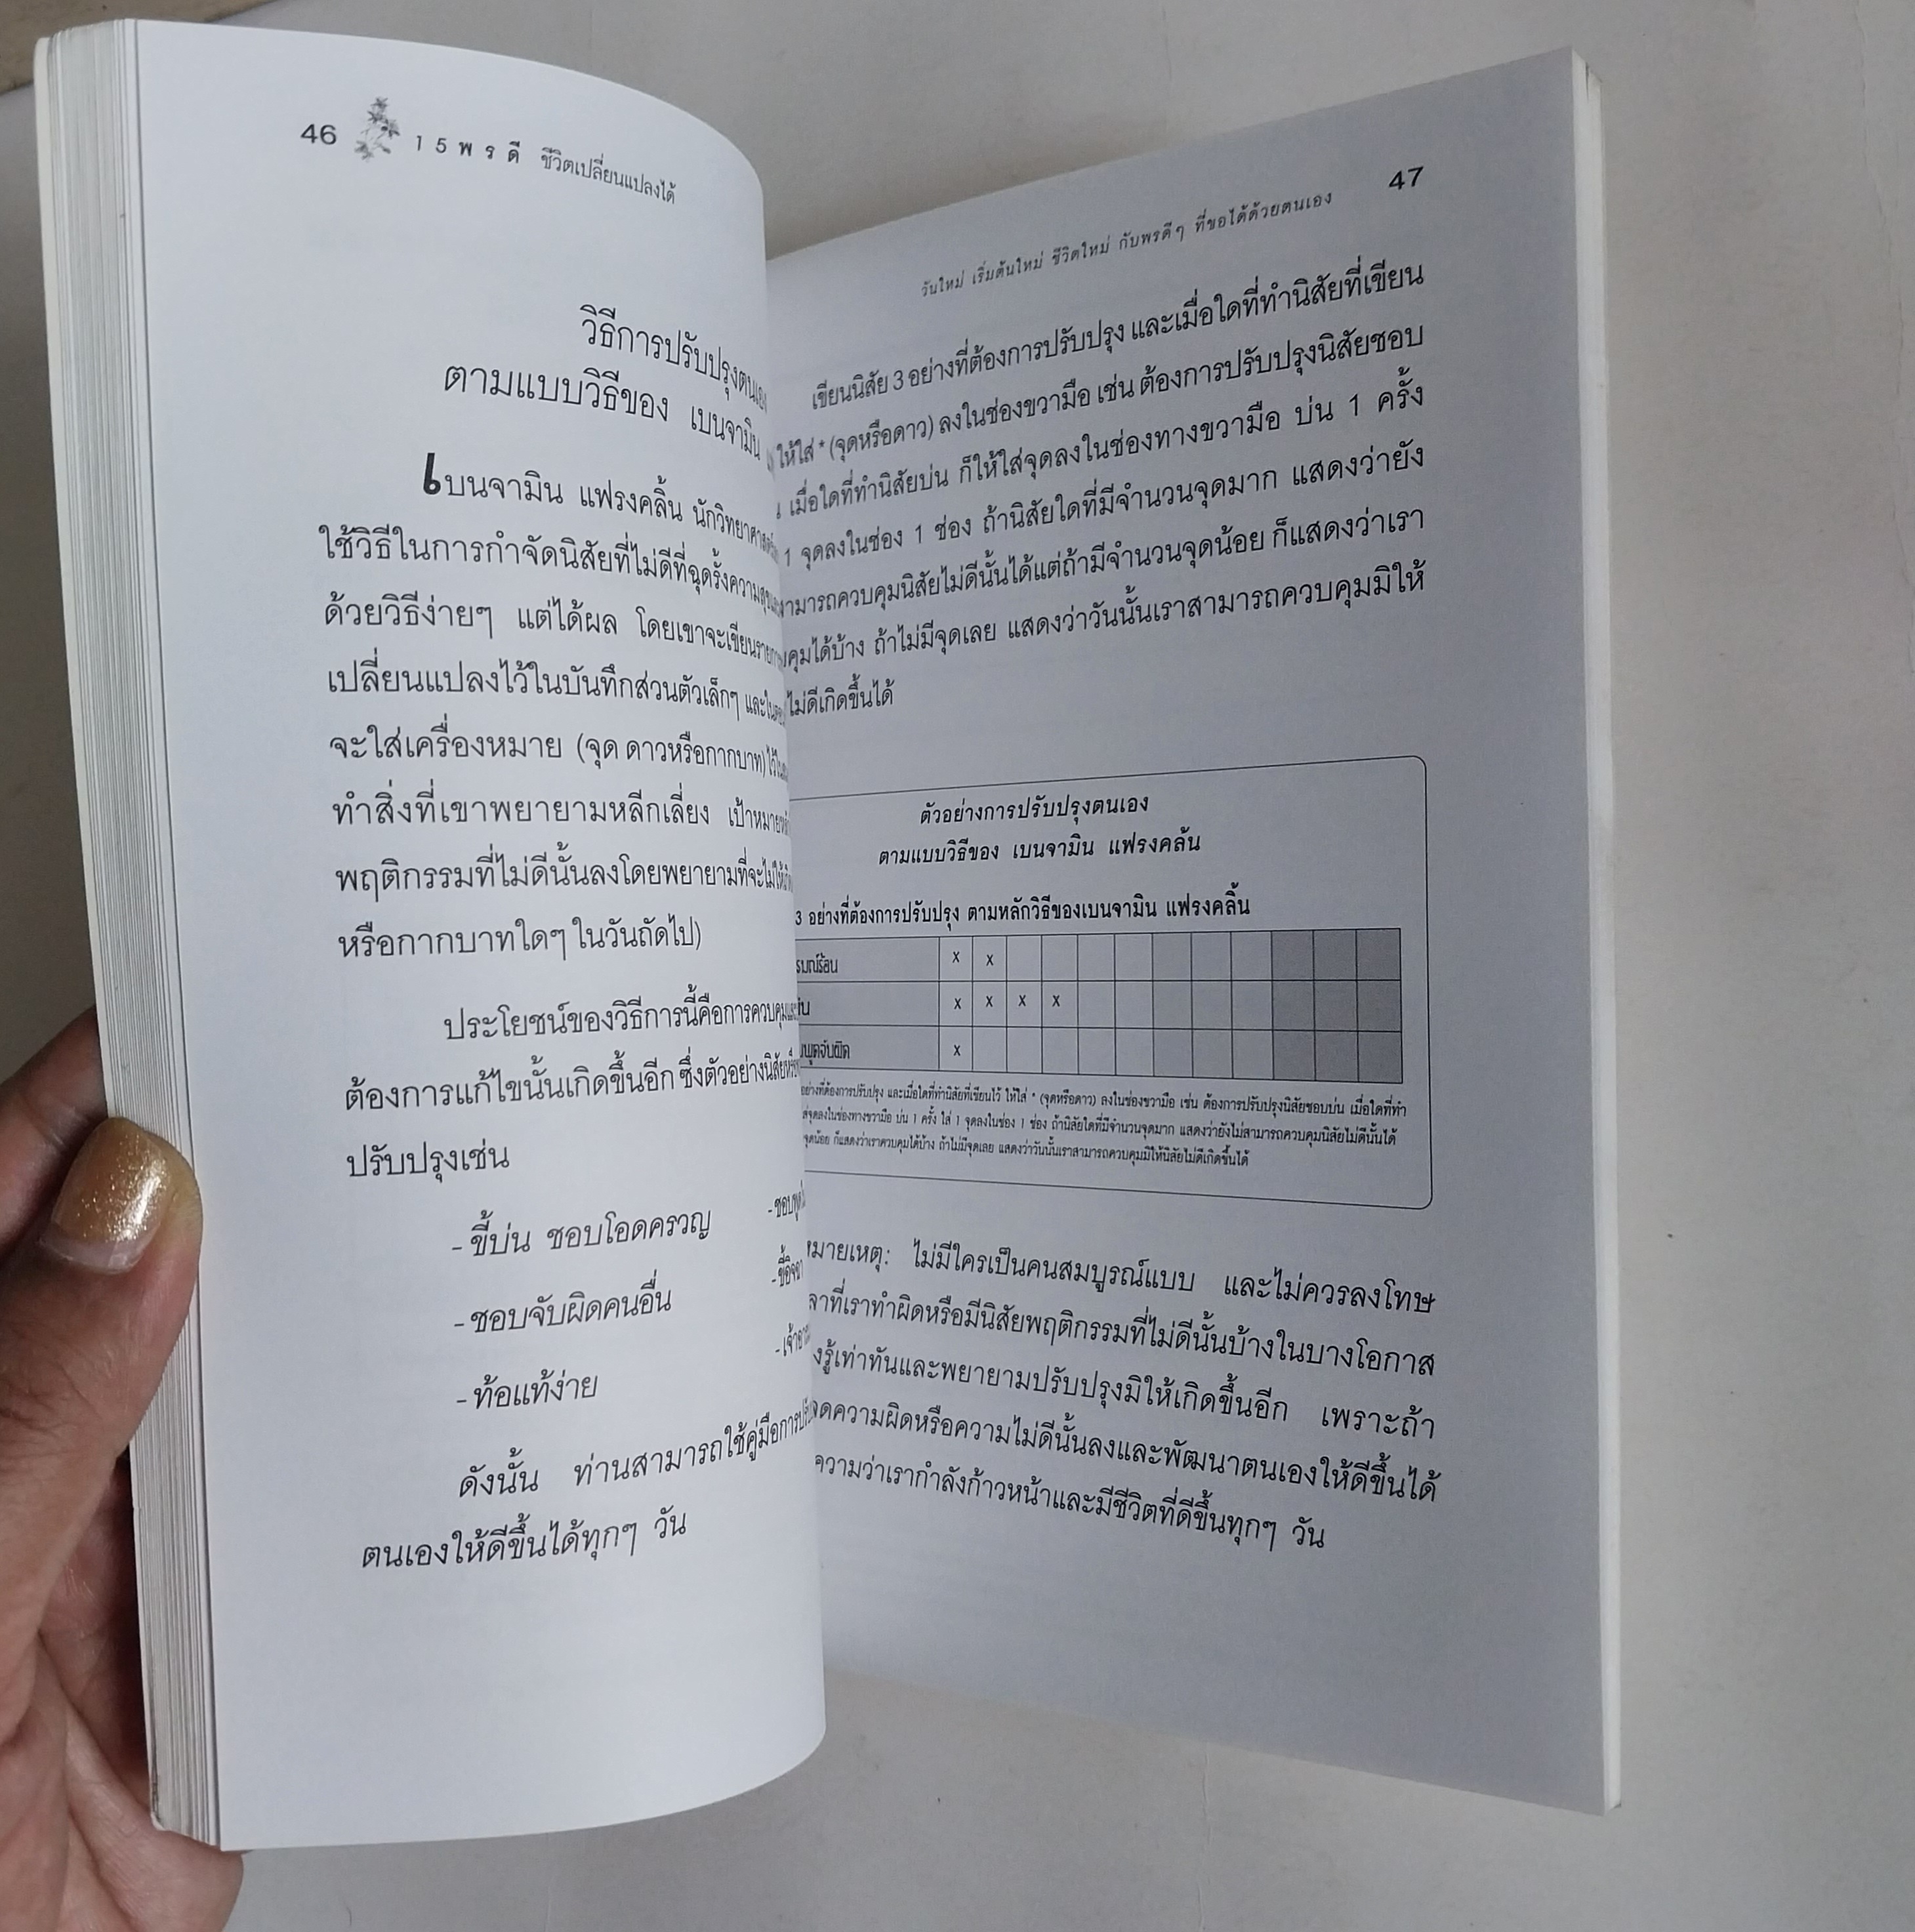 46
15พรดี ชีวิตเปลี่ยนแปลงได้
วิธีการปรับปรุงตนเอง
ตามแบบวิธีของ เบนจามิน
เบนจามิน แฟรงคลิ้น นักวิทยาศาสตร์
ใช้วิธีในการกำจัดนิสัยที่ไม่ดีที่ฉุดรั้งความสุข
ด้วยวิธีง่ายๆ แต่ได้ผล โดยเขาจะเขียน
เปลี่ยนแปลงไว้ในบันทึกส่วนตัวเล็กๆ
จะใส่เครื่องหมาย (จุด ดาวหรือกากบาท)
ทำสิ่งที่เขาพยายามหลีกเลี่ยง เป้าหมาย
พฤติกรรมที่ไม่ดีนั้นลงโดยพยายามที่จะไม่ให้
หรือกากบาทใดๆ ในวันถัดไป)
ประโยชน์ของวิธีการนี้คือการควบคุม
ต้องการแก้ไขนั้นเกิดขึ้นอีก ซึ่งตัวอย่างนิสัย
ปรับปรุงเช่น
- ขี้บ่น ชอบโอดครวญ
- ชอบพูด
- ชอบจับผิดคนอื่น
- ขี้อิจฉา
- ท้อแท้ง่าย
ดังนั้น ท่านสามารถใช้คู่มือการ
ตนเองให้ดีขึ้นได้ทุกๆ วัน
47
วันใหม่ เริ่มต้นใหม่ ชีวิตใหม่ กับพรดีๆ ที่ขอได้ด้วยตนเอง
เขียนนิสัย 3 อย่างที่ต้องการปรับปรุง และเมื่อใดที่ทำนิสัยที่เขียน
ให้ใส่ * (จุดหรือดาว) ลงในช่องขวามือ เช่น ต้องการปรับปรุงนิสัยชอบ
เมื่อใดที่ทำนิสัยบ่น ก็ให้ใส่จุดลงในช่องทางขวามือ บ่น 1 ครั้ง
1 จุดลงในช่อง 1 ช่อง ถ้านิสัยใดที่มีจำนวนจุดมาก แสดงว่ายัง
สามารถควบคุมนิสัยไม่ดีนั้นได้แต่ถ้ามีจำนวนจุดน้อย ก็แสดงว่าเรา
คุมได้บ้าง ถ้าไม่มีจุดเลย แสดงว่าวันนั้นเราสามารถควบคุมมิให้
ไม่ดีเกิดขึ้นได้
ตัวอย่างการปรับปรุงตนเอง
ตามแบบวิธีของ เบนจามิน แฟรงคลิ้น
3 อย่างที่ต้องการปรับปรุง ตามหลักวิธีของเบนจามิน แฟรงคลิ้น
รมณ์ร้อน x x
x x x x
พูดจับผิด x
อย่างที่ต้องการปรับปรุง และเมื่อใดที่ทำนิสัยที่เขียนไว้ ให้ใส่ * (จุดหรือดาว) ลงในช่องขวามือ เช่น ต้องการปรับปรุงนิสัยชอบบ่น เมื่อใดที่ทำ
จุดลงในช่องทางขวามือ บ่น 1 ครั้ง ใส่ 1 จุดลงในช่อง 1 ช่อง ถ้านิสัยใดที่มีจำนวนจุดมาก แสดงว่ายังไม่สามารถควบคุมนิสัยไม่ดีนั้นได้
จุดน้อย ก็แสดงว่าเราควบคุมได้บ้าง ถ้าไม่มีจุดเลย แสดงว่าวันนั้นเราสามารถควบคุมมิให้นิสัยไม่ดีเกิดขึ้นได้
หมายเหตุ: ไม่มีใครเป็นคนสมบูรณ์แบบ และไม่ควรลงโทษ
ลาที่เราทำผิดหรือมีนิสัยพฤติกรรมที่ไม่ดีนั้นบ้างในบางโอกาส
รู้เท่าทันและพยายามปรับปรุงมิให้เกิดขึ้นอีก เพราะถ้า
ลดความผิดหรือความไม่ดีนั้นลงและพัฒนาตนเองให้ดีขึ้นได้
ความว่าเรากำลังก้าวหน้าและมีชีวิตที่ดีขึ้นทุกๆ วัน